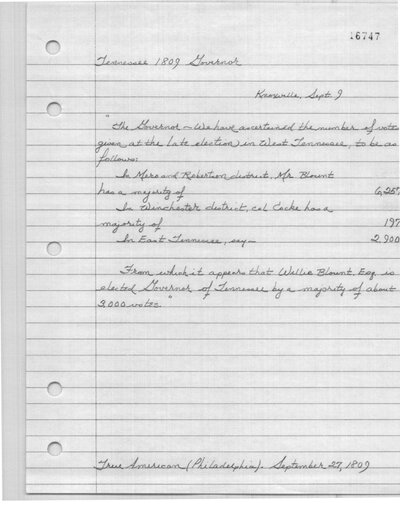 16747
Tennessee 1809 Governor
Knoxville, Sept. 9
"The Governor - We have ascertained the number of votes
given, at the late election, in West Tennessee, to be as
follows:
In Mero and Robertson district, Mr. Blount
has a majority of 6,257
In Winchester district, col Cocke has a
majority of 197
In East Tennessee, say - 2,900
From which it appears that Willie Blount, Esq. is
elected Governor of Tennessee by a majority of about
3,000 votes."
True American (Philadelphia). September 27, 1809